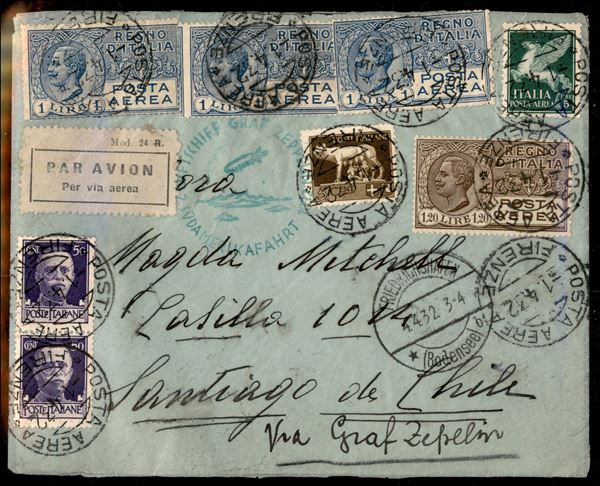 REGNO D'ITALIA
1 LIRE 1
POSTA AEREA
REGNO D'ITALIA
1 LIRE
POSTA AEREA
REGNO D'ITALIA
1 LIRE 1
POSTA AEREA
ITALIA
POSTA AEREA
5
Mod. 24 R.
PAR AVION
Per via aerea
LUFTSCHIFF GRAF ZEPPELIN
SÜDAMERIKAFAHRT
REGNO D'ITALIA
1,20 LIRE 1,20
POSTA AEREA
POSTA AEREA
FIRENZE
1.4.32
CENT. 50
POSTE ITALIANE
CENT. 50
POSTE ITALIANE
Magda Mitchell
Casilla 1014
Santiago de Chile
Via Graf Zepelin
FRIEDRICHSHAFEN
4.4.32. 3-4
(Bodensee)